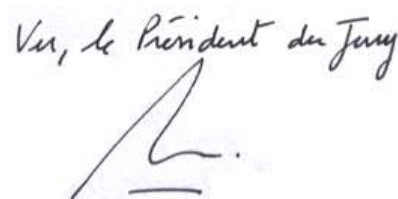 Vu, le Président du Jury